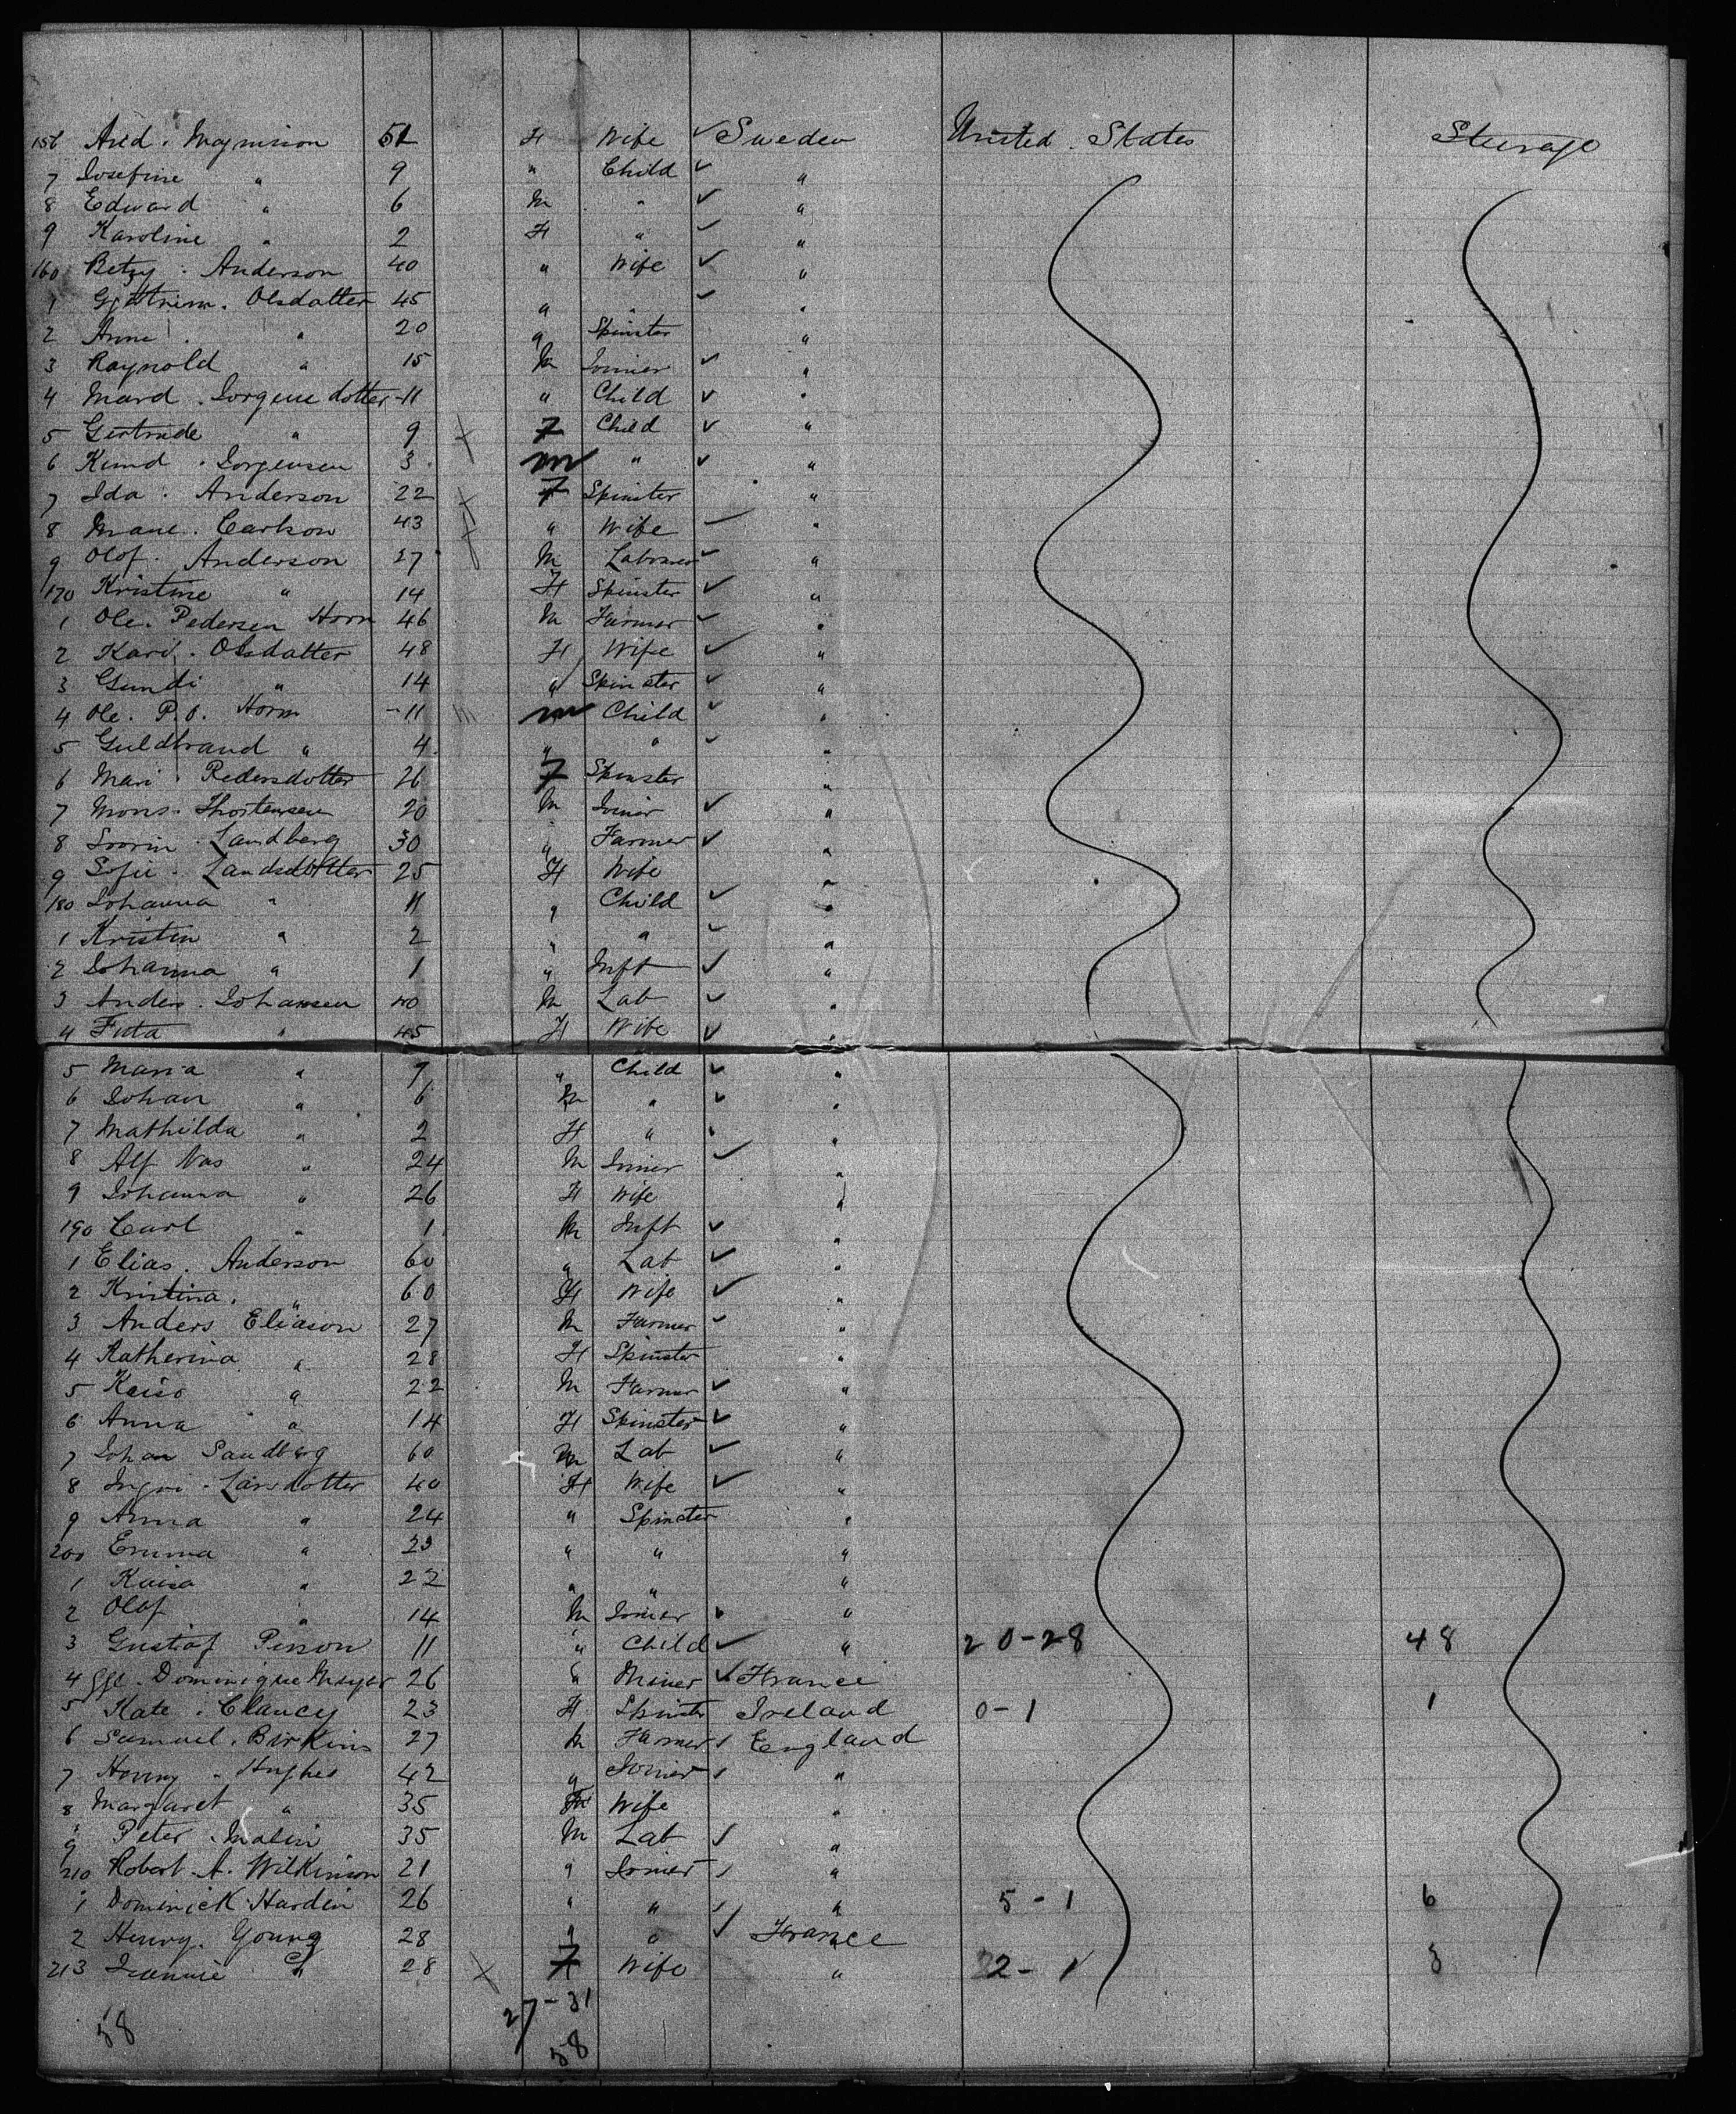 156 Ard. Magnusson 51 F Wife ✓ Sweden United States Steerage
7 Josefine " 9 " Child ✓ "
8 Edward " 6 M " ✓ "
9 Karoline " 2 F " ✓ "
160 Betzy. Anderson 40 " Wife ✓ "
1 Olsdatter 45 " " ✓ "
2 Anne. " 20 " Spinster "
3 Raynold " 15 M Joiner ✓ "
4 Mard. Jorgens dotter - 11 " Child ✓ "
5 Gertrude " 9 F Child ✓ "
6 Knud. Jorgensen 3 m " ✓ "
7 Ida. Anderson 22 F Spinster "
8 Mane. Carlson 43 " Wife ✓ "
9 Olof. Anderson 27 M Labourer ✓ "
170 Kristine " 14 F Spinster ✓ "
1 Ole. Pedersen Horn 46 M Farmer ✓ "
2 Kari. Olsdatter 48 F Wife ✓ "
3 Gundi " 14 " Spinster ✓ "
4 Ole. P.O. Horn - 11 m Child ✓ "
5 Guldbrand " 4 " " ✓ "
6 Mari. Pedersdotter 26 F Spinster "
7 Mons. Thostensen 20 M Joiner ✓ "
8 Sorin. Landberg 30 " Farmer ✓ "
9 Sofie. Landsdotter 25 F Wife "
180 Johanna " 11 " Child ✓ "
1 Kristin " 2 " " ✓ "
2 Johanna " 1 " Inft ✓ "
3 Anders. Johansen 40 M Lab ✓ "
4 " 45 F Wife ✓ "
5 Maria " 9 " Child ✓ "
6 Johan " 6 M " ✓ "
7 Mathilda " 2 F " "
8 Alf Nas " 24 M Joiner ✓ "
9 Johanna " 26 F Wife "
190 Carl " 1 M Inft ✓ "
1 Elias. Anderson 60 " Lab ✓ "
2 Kristina. " 60 F Wife ✓ "
3 Anders Eliason 27 M Farmer ✓ "
4 Katherina " 28 F Spinster "
5 Kaiso " 22 M Farmer ✓ "
6 Anna " 14 F Spinster ✓ "
7 Johan Sandberg 60 M Lab ✓ "
8 Ingri. Larsdotter 40 F Wife ✓ "
9 Anna " 24 " Spinster "
200 Emma " 23 " " "
1 Kaisa " 22 " " "
2 Olof " 14 M Joiner "
3 Gustaf Person 11 " Child ✓ " 20-28 48
4 Dominique Meyer 26 " Miner ✓ France
5 Kate. Clancy 23 F Spinster Ireland 0-1 1
6 Samuel. Birkins 27 M Farmer ✓ England
7 Henry. Hughes 42 " Joiner ✓ "
8 Margaret " 35 F Wife "
9 Peter. Malin 35 M Lab ✓ "
210 Robert. A. Wilkinson 21 " Joiner ✓ "
1 Dominick Harden 26 " " ✓ " 5-1 6
2 Henry. Young 28 " " ✓ France
213 Jeannie " 28 F Wife " 2-1 3
27-31
58 58